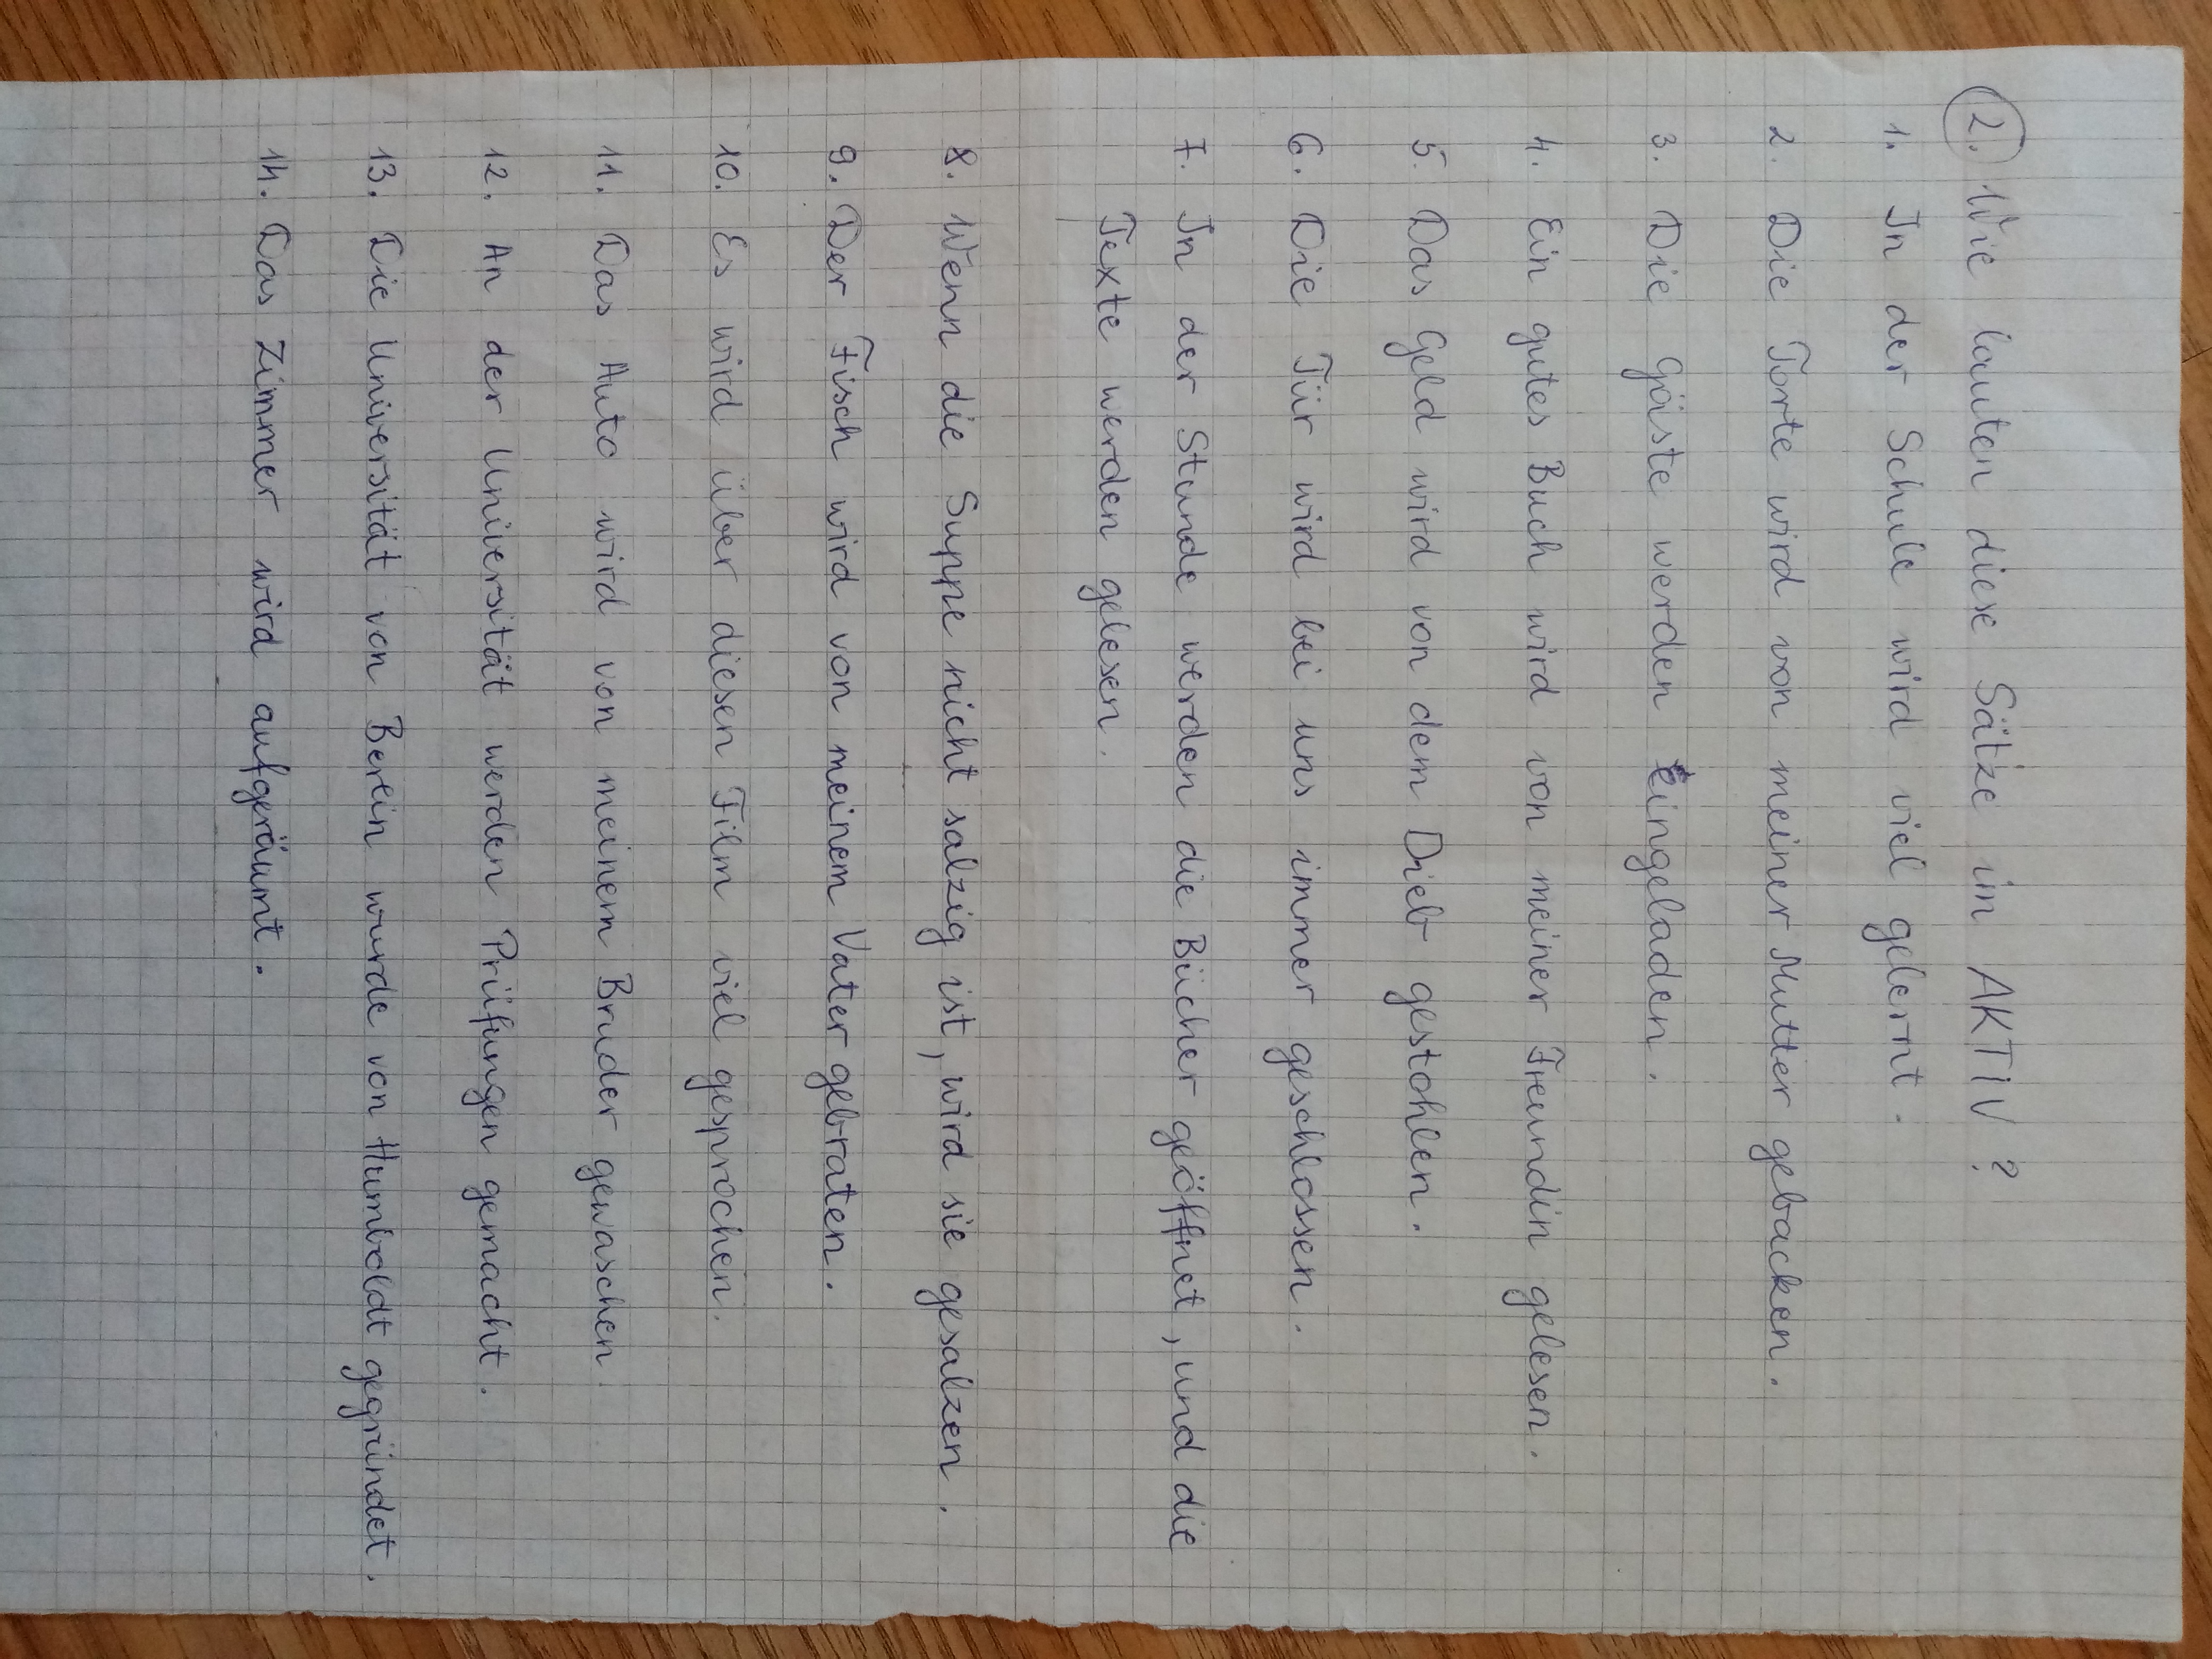 2. Wie lauten diese Sätze im AKTIV?
1. In der Schule wird viel gelernt.
2. Die Torte wird von meiner Mutter gebacken.
3. Die Gäste werden eingeladen.
4. Ein gutes Buch wird von meiner Freundin gelesen.
5. Das Geld wird von dem Dieb gestohlen.
6. Die Tür wird bei uns immer geschlossen.
7. In der Stunde werden die Bücher geöffnet, und die
Texte werden gelesen.
8. Wenn die Suppe nicht salzig ist, wird sie gesalzen.
9. Der Fisch wird von meinem Vater gebraten.
10. Es wird über diesen Film viel gesprochen.
11. Das Auto wird von meinem Bruder gewaschen.
12. An der Universität werden Prüfungen gemacht.
13. Die Universität von Berlin wurde von Humboldt gegründet.
14. Das Zimmer wird aufgeräumt.